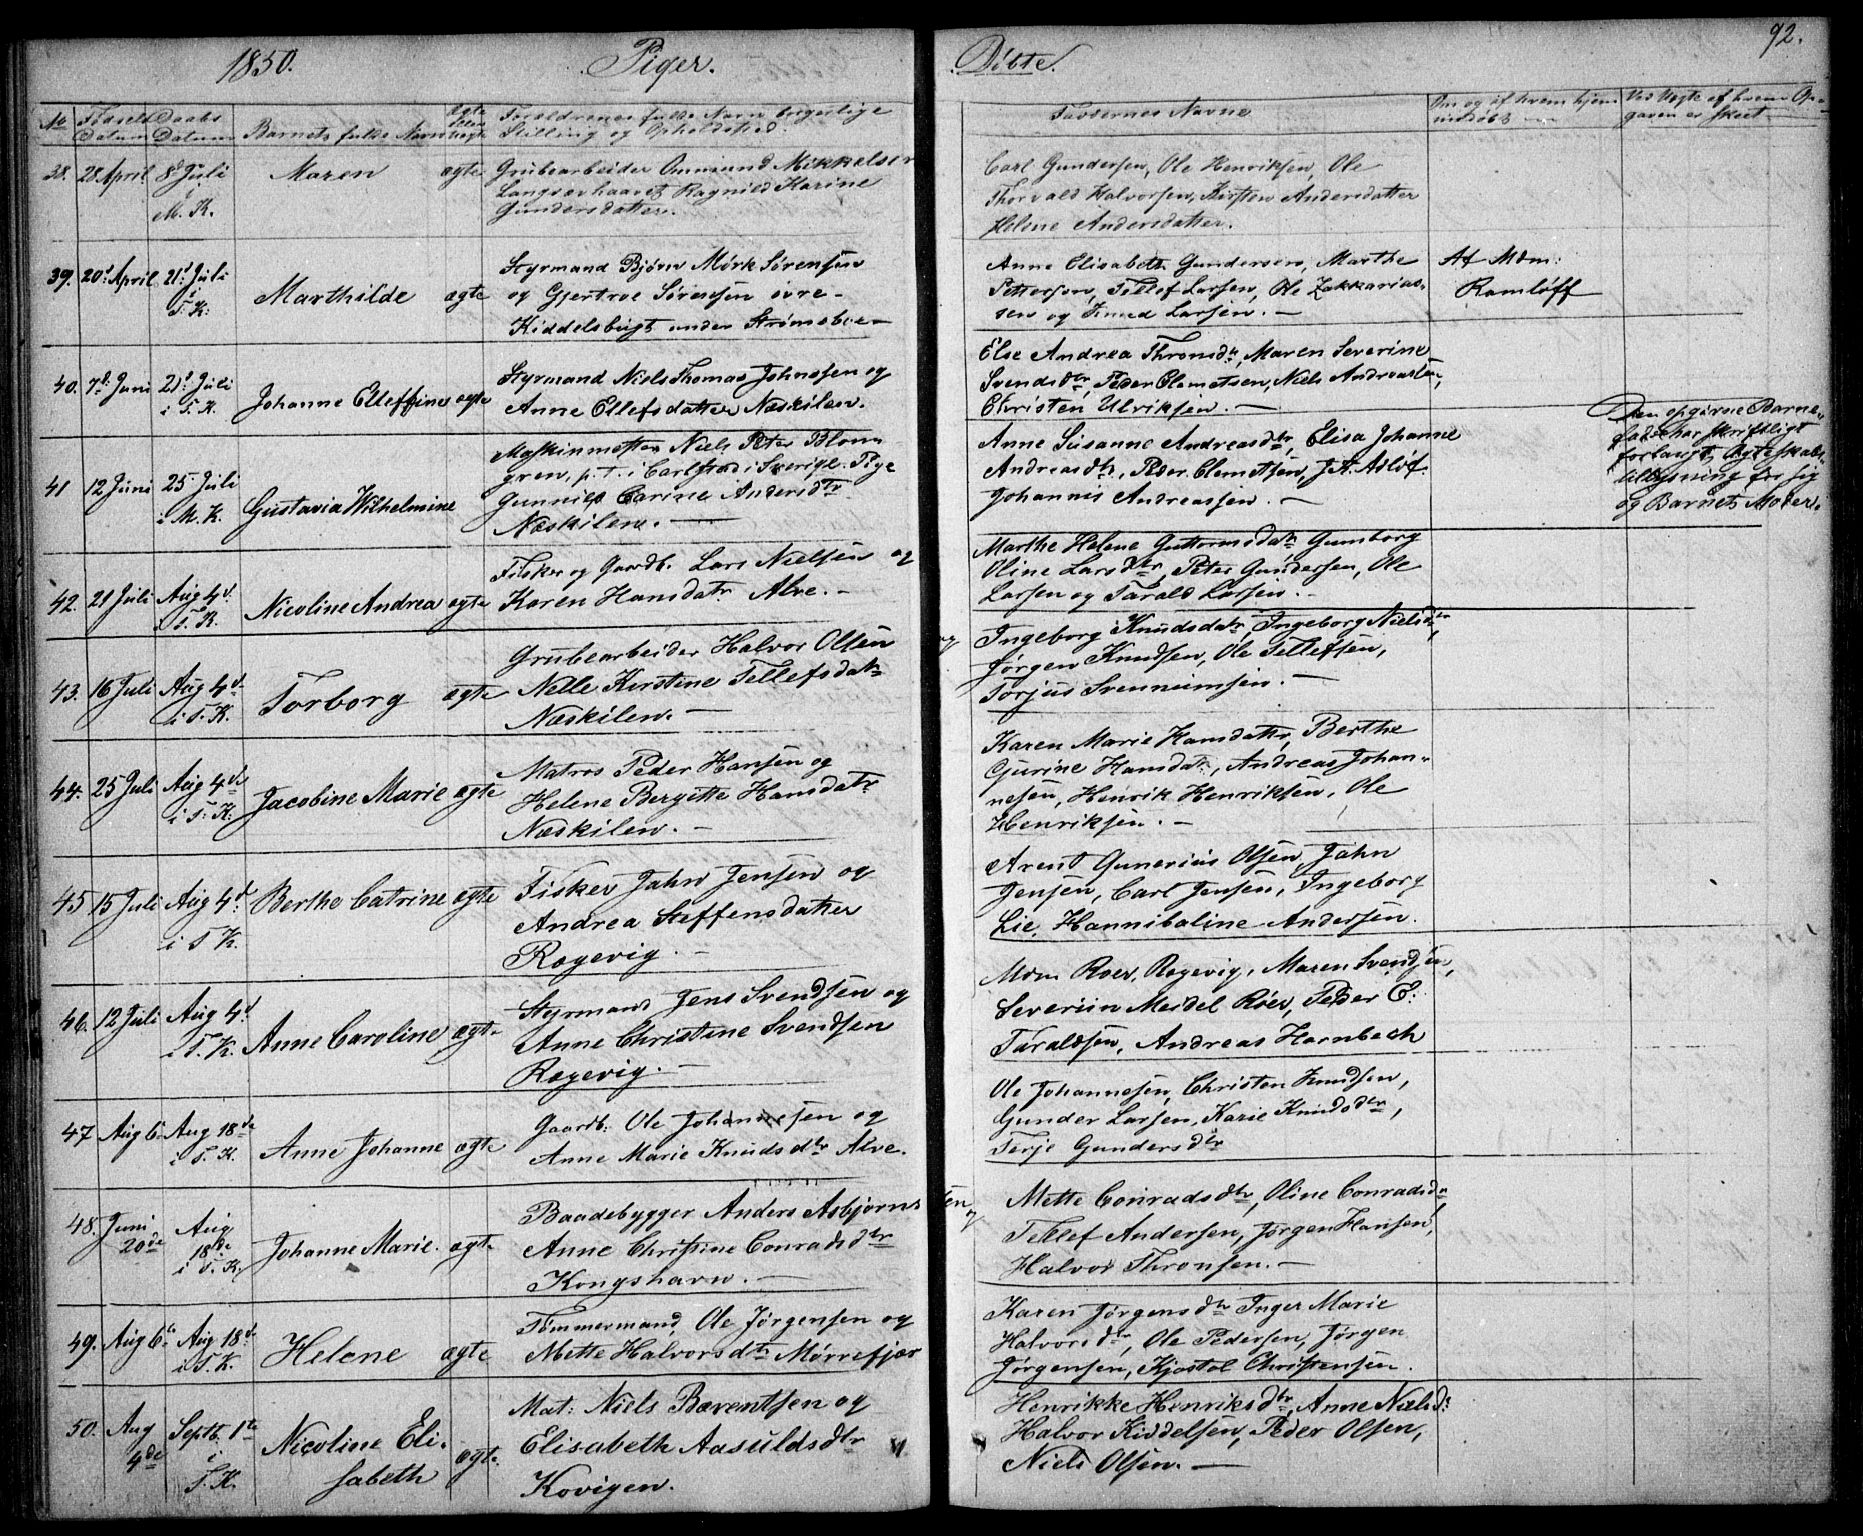 1850.
Piger.
Døbte.
92.
No
Fødsels Datum
Daabs Datum
Barnets fulde Navn
Forældrenes fulde Navn borgerlige
Stilling og Opholdsted.
Faddernes Navne
Om og af hvem hjem
mædøbt
38. 28 April 8d Juli
i
M. K.
Maren
ægte
Grubearbeider Ommund Mikkelsen
Ragnild Karine
Gundersdatter.
Carl Gundersen, Ole Henriksen, Ole
Thorvald Halvorsen, Kirsten Andersdatter
Helene Andersdatter.
39. 20d April 21d Juli
i
T. K.
Marthilde
ægte
Styrmand Bjørn Mørk Sørensen
og Gjertrue Sørensen øvre
Kiddelsbugt under Strømsboe
Anne Elisabeth Gundersen, Marthe
Pettersen, Tellef Larsen, Ole Zakkarias-
sen og Knud Larsen. —
Af Mdm:
Ramløff
40. 7d Juni 21d Juli
i T. K.
Johanne Elleffine
ægte
Styrmand Niels Thomas Johnssen og
Anne Ellefsdatter Næskilen.
Else Andrea Thronsdtr, Maren Severine
Svendsdtr, Peder Clemetsen, Niels Andreassen,
Christen Ulriksen. —
41 12 Juni 25 Juli
i M. K.
Gustavia Wilhelmine
Maskinmester Niels Peter Blom
gren, p. t. i Carlstad i Sverige. Pige
Gunnild Carine Andersdtr
Næskilen. —
Anne Susanne Andreasdtr, Elisa Johanne
Andreasdtr, Peder Clemetsen, J. A. Adlöf
Johannes Andreassen. —
Den opgivne Barne-
fader har skriftligt
forlangt Ægteskabs-
tillysning for sig
og Barnets Moder.
42. 21 Juli Aug 4d
i T. K.
Nicoline Andrea
ægte
Fisker og Gaardb. Lars Nielsen og
Karen Hansdatr Alve. —
Marthe Helene Guttormsdatr Gunborg
Oline Larsdtr, Peter Gundersen, Ole
Larsen og Tarald Larsen. —
43. 16 Juli Aug 4d
i T. K.
Torborg
ægte
Grubearbeider Halvor Olsen og
Nelle Kirstine Tellefsdatr
Næskilen. —
Ingeborg Knudsdatr, Ingeborg Nielsdtr,
Jørgen Knudsen, Ole Tellefsen,
Torjus Svennumsen. —
44. 25 Juli Aug 4de
i T. K.
Jacobine Marie
ægte
Matros Peder Hansen og
Helene Bergitte Hansdatr
Næskilen. —
Karen Marie Hansdatr, Berthe
Gurine Hansdatr, Andreas Johan-
nesen, Henrik Henriksen, Ole
Henriksen. —
45 15 Juli Aug 4d
i T. K.
Berthe Catrine
ægte
Fisker Jahn Jensen og
Andrea Steffensdatter
Rægevig. —
Arent Gunerius Olsen, Jahn
Jensen, Carl Jensen, Ingeborg
Lie, Hannibaline Andersen.
46. 12 Juli Aug 4d
i T. K.
Anne Caroline
ægte
Styrmand Jens Svendsen og
Anne Christine Svendsen
Rægevig. —
Mdm Roer, Rægevig, Maren Svendsen,
Severin Meidel Röer, Peder C:
Taraldsen, Andreas Harnbech
47 Aug 6 Aug 18de
i T. K.
Anne Johanne
ægte
Gaardb: Ole Johannesen og
Anne Marie Knudsdtr Alve.
Ole Johannesen, Christen Knudsen,
Gunder Larsen, Karie Knudsdtr,
Terje Gundersdtr
48. Juni
20de
Aug
18de
i T. K.
Johanne Marie.
ægte
Baadebygger Anders Asbjørnsen og
Anne Christine Conradsdtr
Kongshavn. —
Mette Conradsdtr, Oline Conradsdtr,
Tellef Andersen, Jørgen Hansen,
Halvor Thronsen. —
49. Aug 6 Aug 18d
i T. K.
Helene
ægte
Tømmermand, Ole Jørgensen og
Mette Halvorsdtr Mørrefjær
Karen Jørgensdtr Inger Marie
Halvorsdtr, Ole Pedersen, Jørgen
Jørgensen, Kjøstol Christensen.
50. Aug
4de
Septb. 1te
i
T. K.
Nicoline Eli-
sabeth
ægte.
Mat: Niels Barentsen og
Elisabeth Aasuldsdtr
Kovigen.
Henrikke Henriksdtr, Anne Nielsd:
Halvor Kiddelsen, Peder Olsen,
Niels Olsen. —